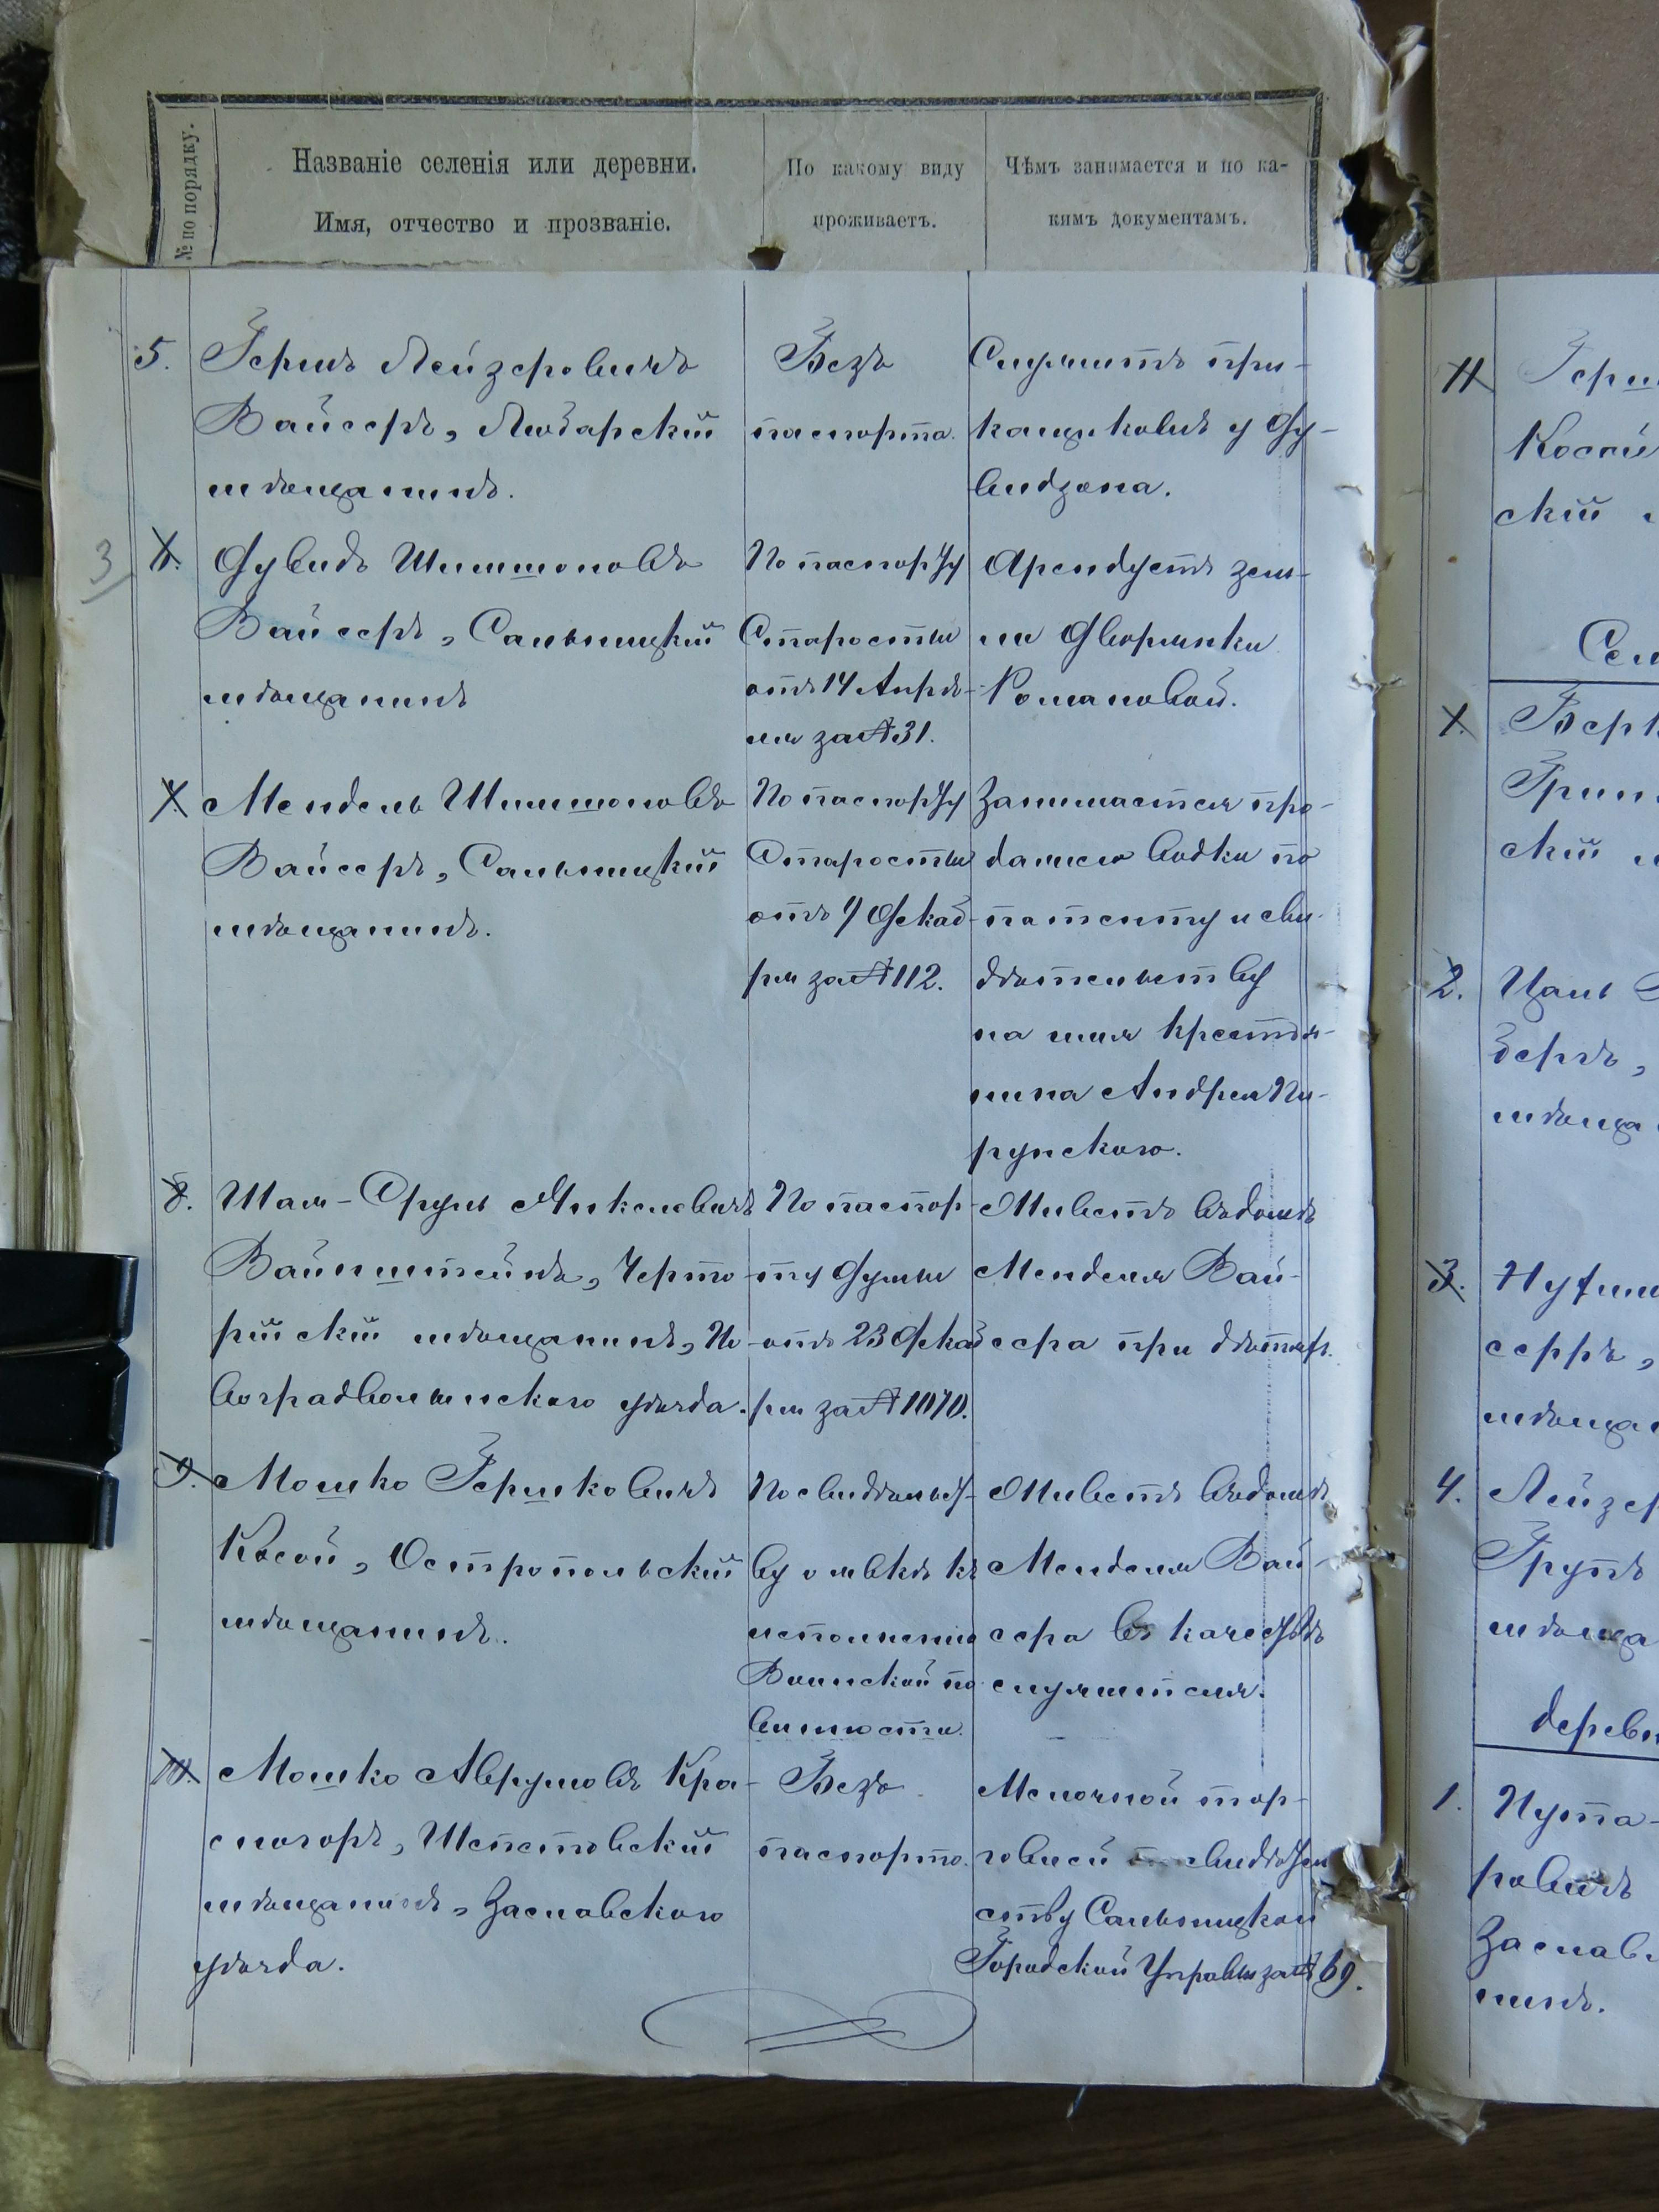 № по порядку.
Названіе селенія или деревни.
Имя, отчество и прозваніе.
По какому виду
проживаетъ.
Чѣмъ занимается и по ка-
кимъ документамъ.
5.
Гершъ Лейзеровичъ
Вайсеръ, Любарскій
мѣщанинъ.
Безъ
паспорта.
Служитъ при-
кащиковъ у Ду-
видзона.
3
6.
Дувидъ Шимшоновъ
Вайсеръ, Сальницкій
мѣщанинъ
По паспорту
Старосты
отъ 14 Апрѣ-
ля за № 31.
Арендуетъ зем-
ли Дворянки
Романовой.
7.
Мендель Шимшоновъ
Вайсеръ, Сальницкій
мѣщанинъ.
По паспорту
Старосты
отъ 9 Декаб-
ря за № 112.
Занимается про-
дажею водки по
патенту и сви-
дѣтельству
на имя крестья-
нина Андрея
рунскаго.
8.
Шая-Сруль
Вайнштейнъ, Черто-
рійскій мѣщанинъ, Но-
воградволынскаго уѣзда.
По паспор-
ту Думы
отъ 23 Декаб
ря за № 1070.
Живетъ въ домѣ
Менделя Вай-
сера при дѣтяхъ.
9.
Мошко Гершковичъ
Косой, Остропольскій
мѣщанинъ.
По свидѣтельст-
ву о явкѣ къ
исполненію
Воинской по
винности.
Живетъ въ домѣ
Менделя Вай-
сера въ качествѣ
служителя.
10.
Мошко Аврумовъ Кра-
сногоръ, Шепетовскій
мѣщанинъ, Заславскаго
уѣзда.
Безъ
паспорта.
Мелочной тор-
говлей по свидѣтель
ству Сальницкой
Городской Управы за № 69.
11
Герш
Косой
скій
Сел
1.
Берк
Грин
скій
2.
Цаль
беръ,
мѣща
3.
Нухим
серръ,
мѣща
4.
Лейзер
Групъ
мѣща
деревн
1.
Нута-
ровичъ
Заслав
нинъ.